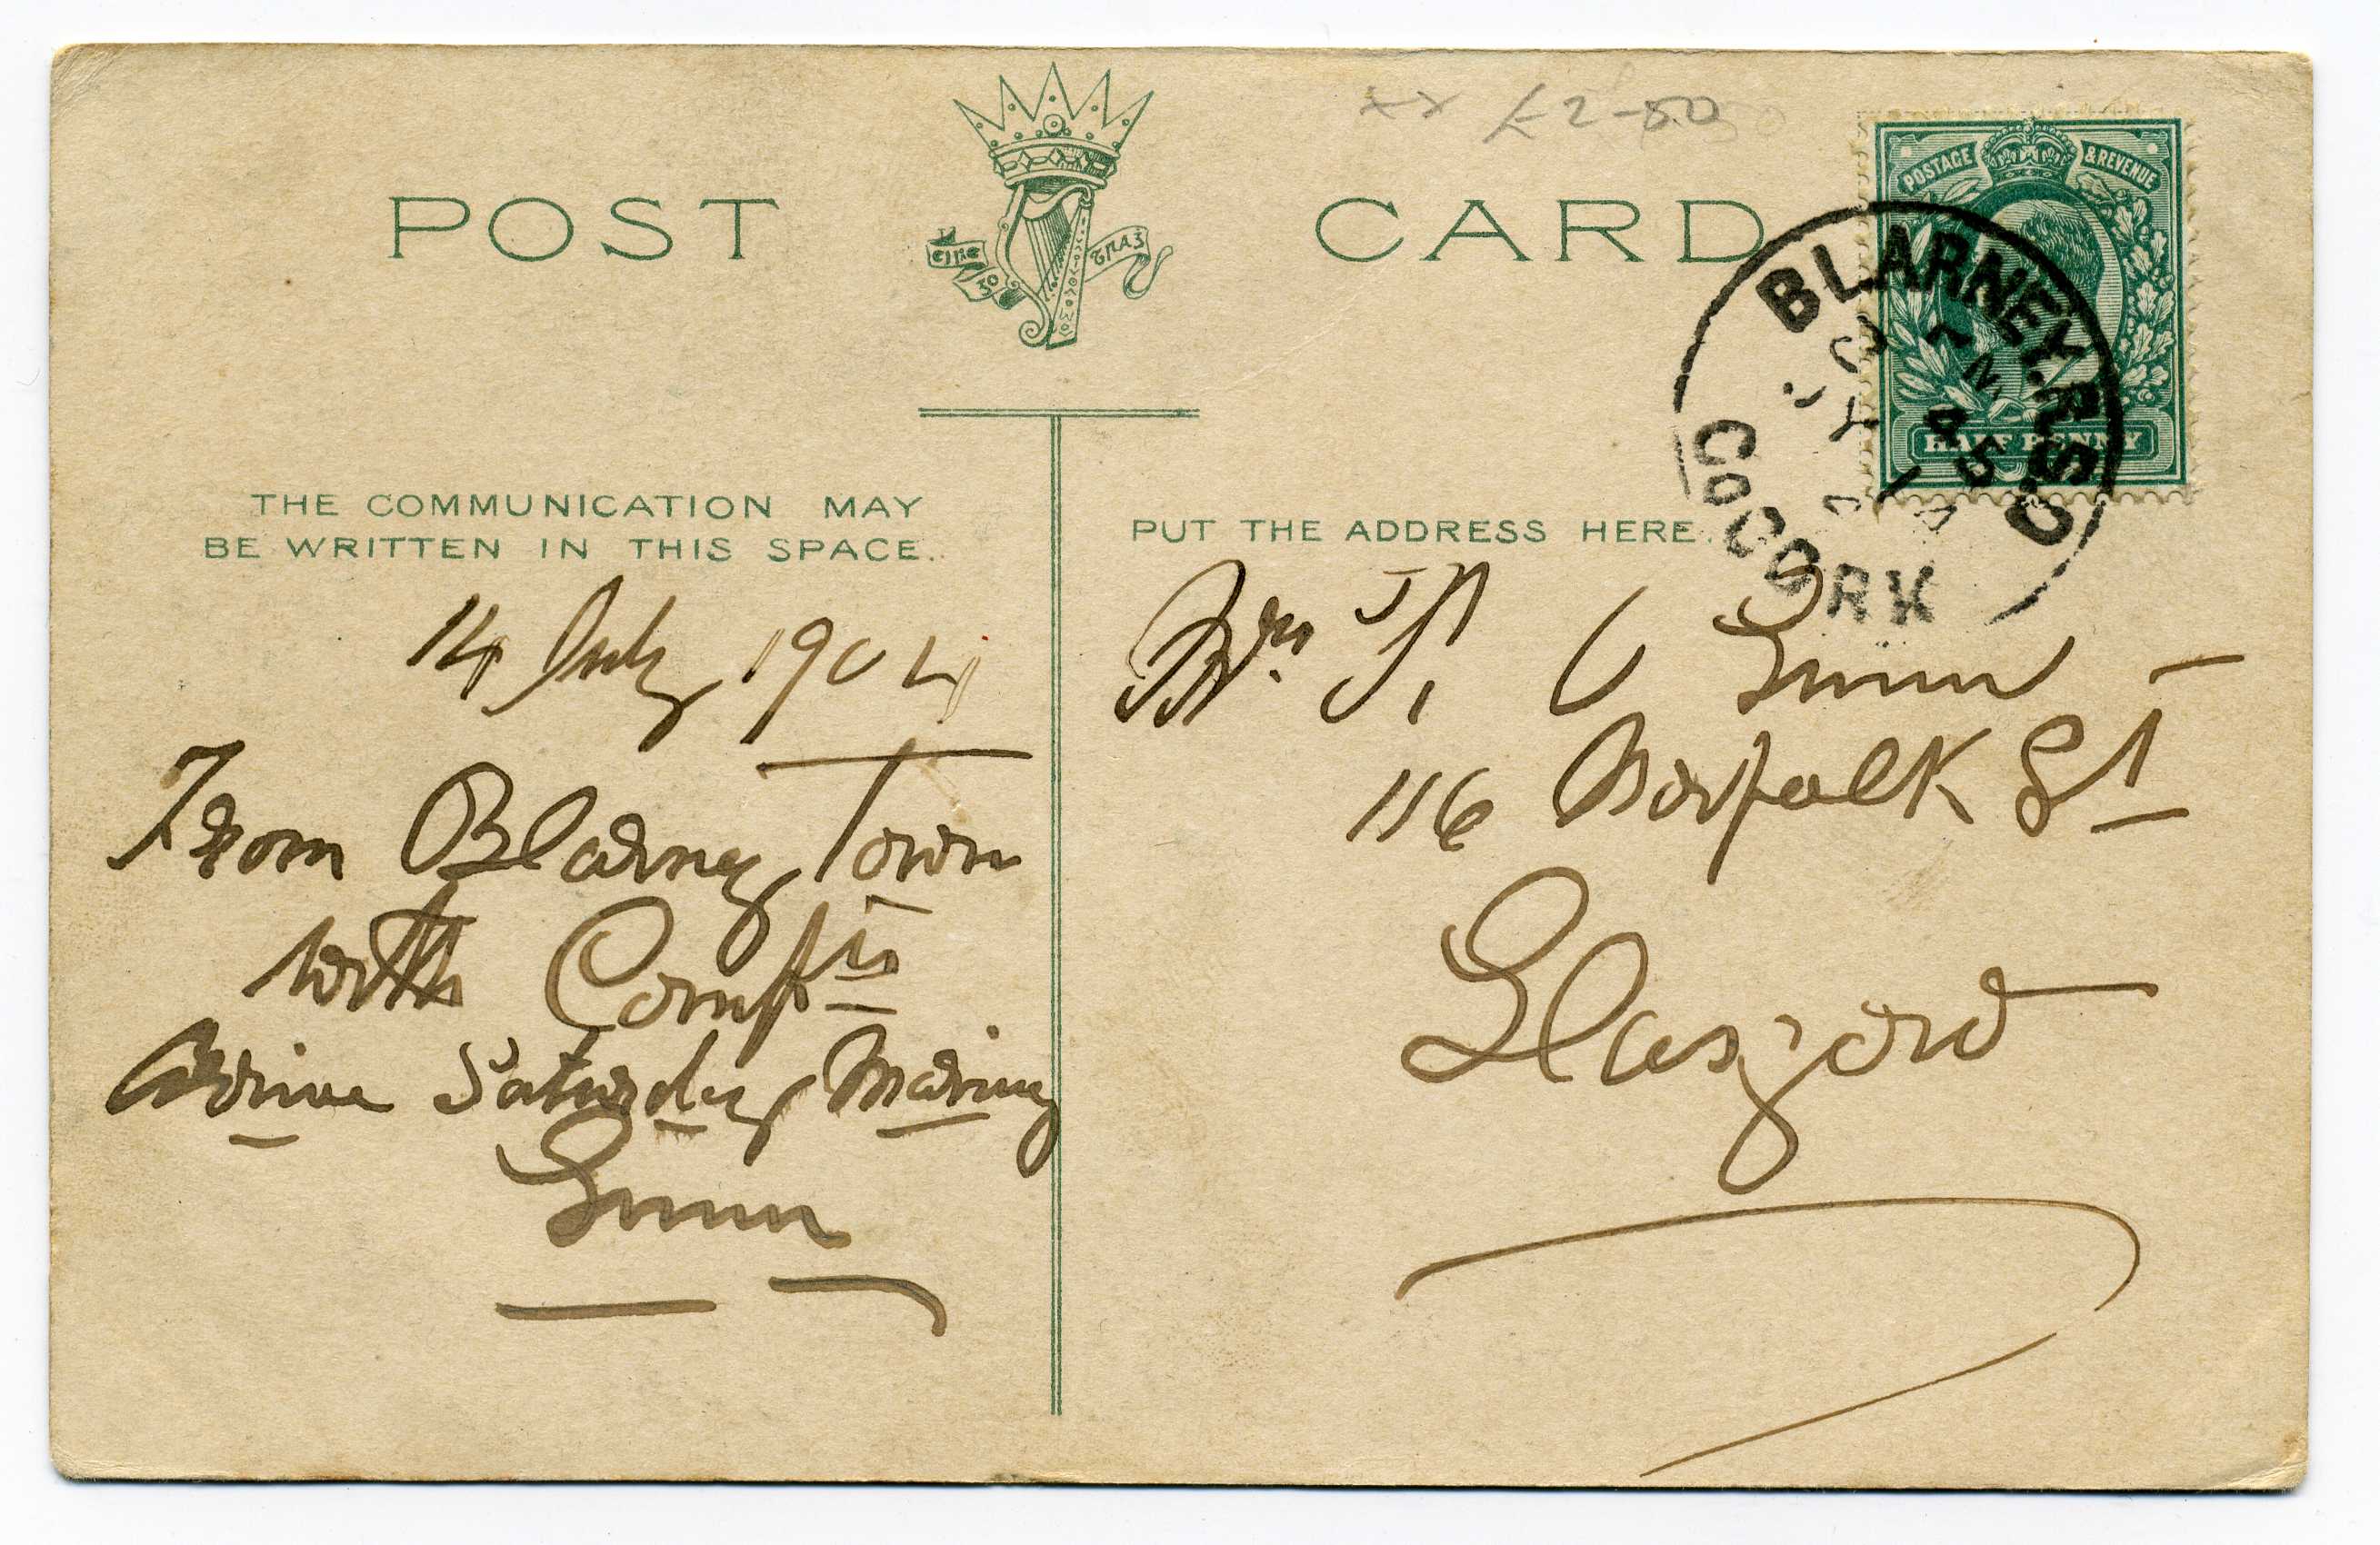 xx £2-50
POST CARD
POSTAGE & REVENUE
HALF PENNY
Eire go bráġ
BLARNEY.R.S.O
CO CORK
JY 14
THE COMMUNICATION MAY
BE WRITTEN IN THIS SPACE.
PUT THE ADDRESS HERE.
14 July 1904
From Blarney Town
with Compts
Arrive Saturday Morning
Gunn
Gunn
116 Norfolk St
Glasgow